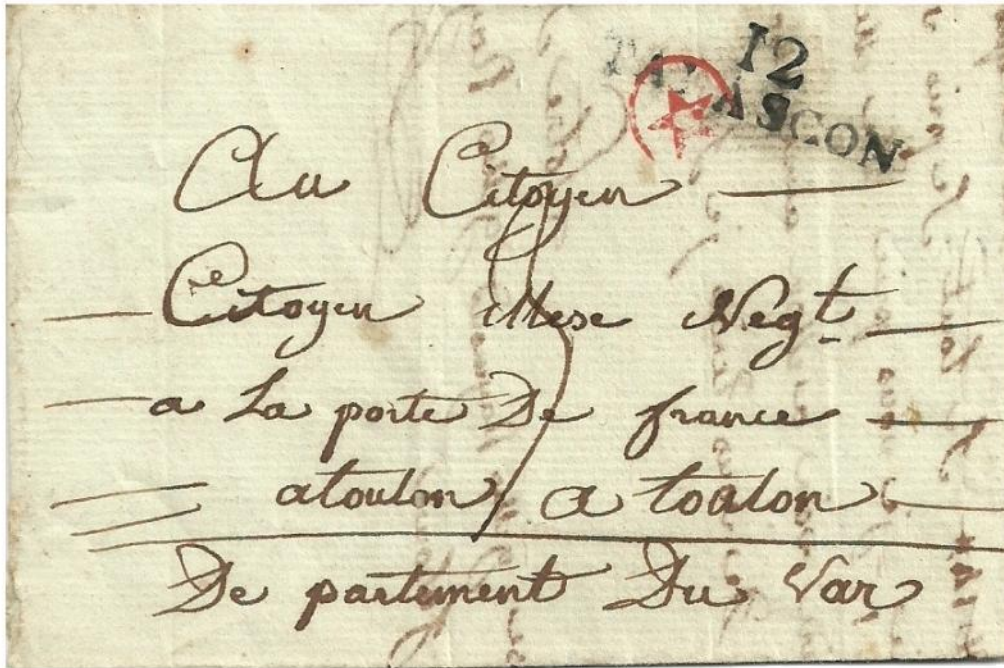 12
TARASCON
Au Citoyen
Citoyen Mese Negt
a La porte De france
atoulon a toulon
De partement Du Var